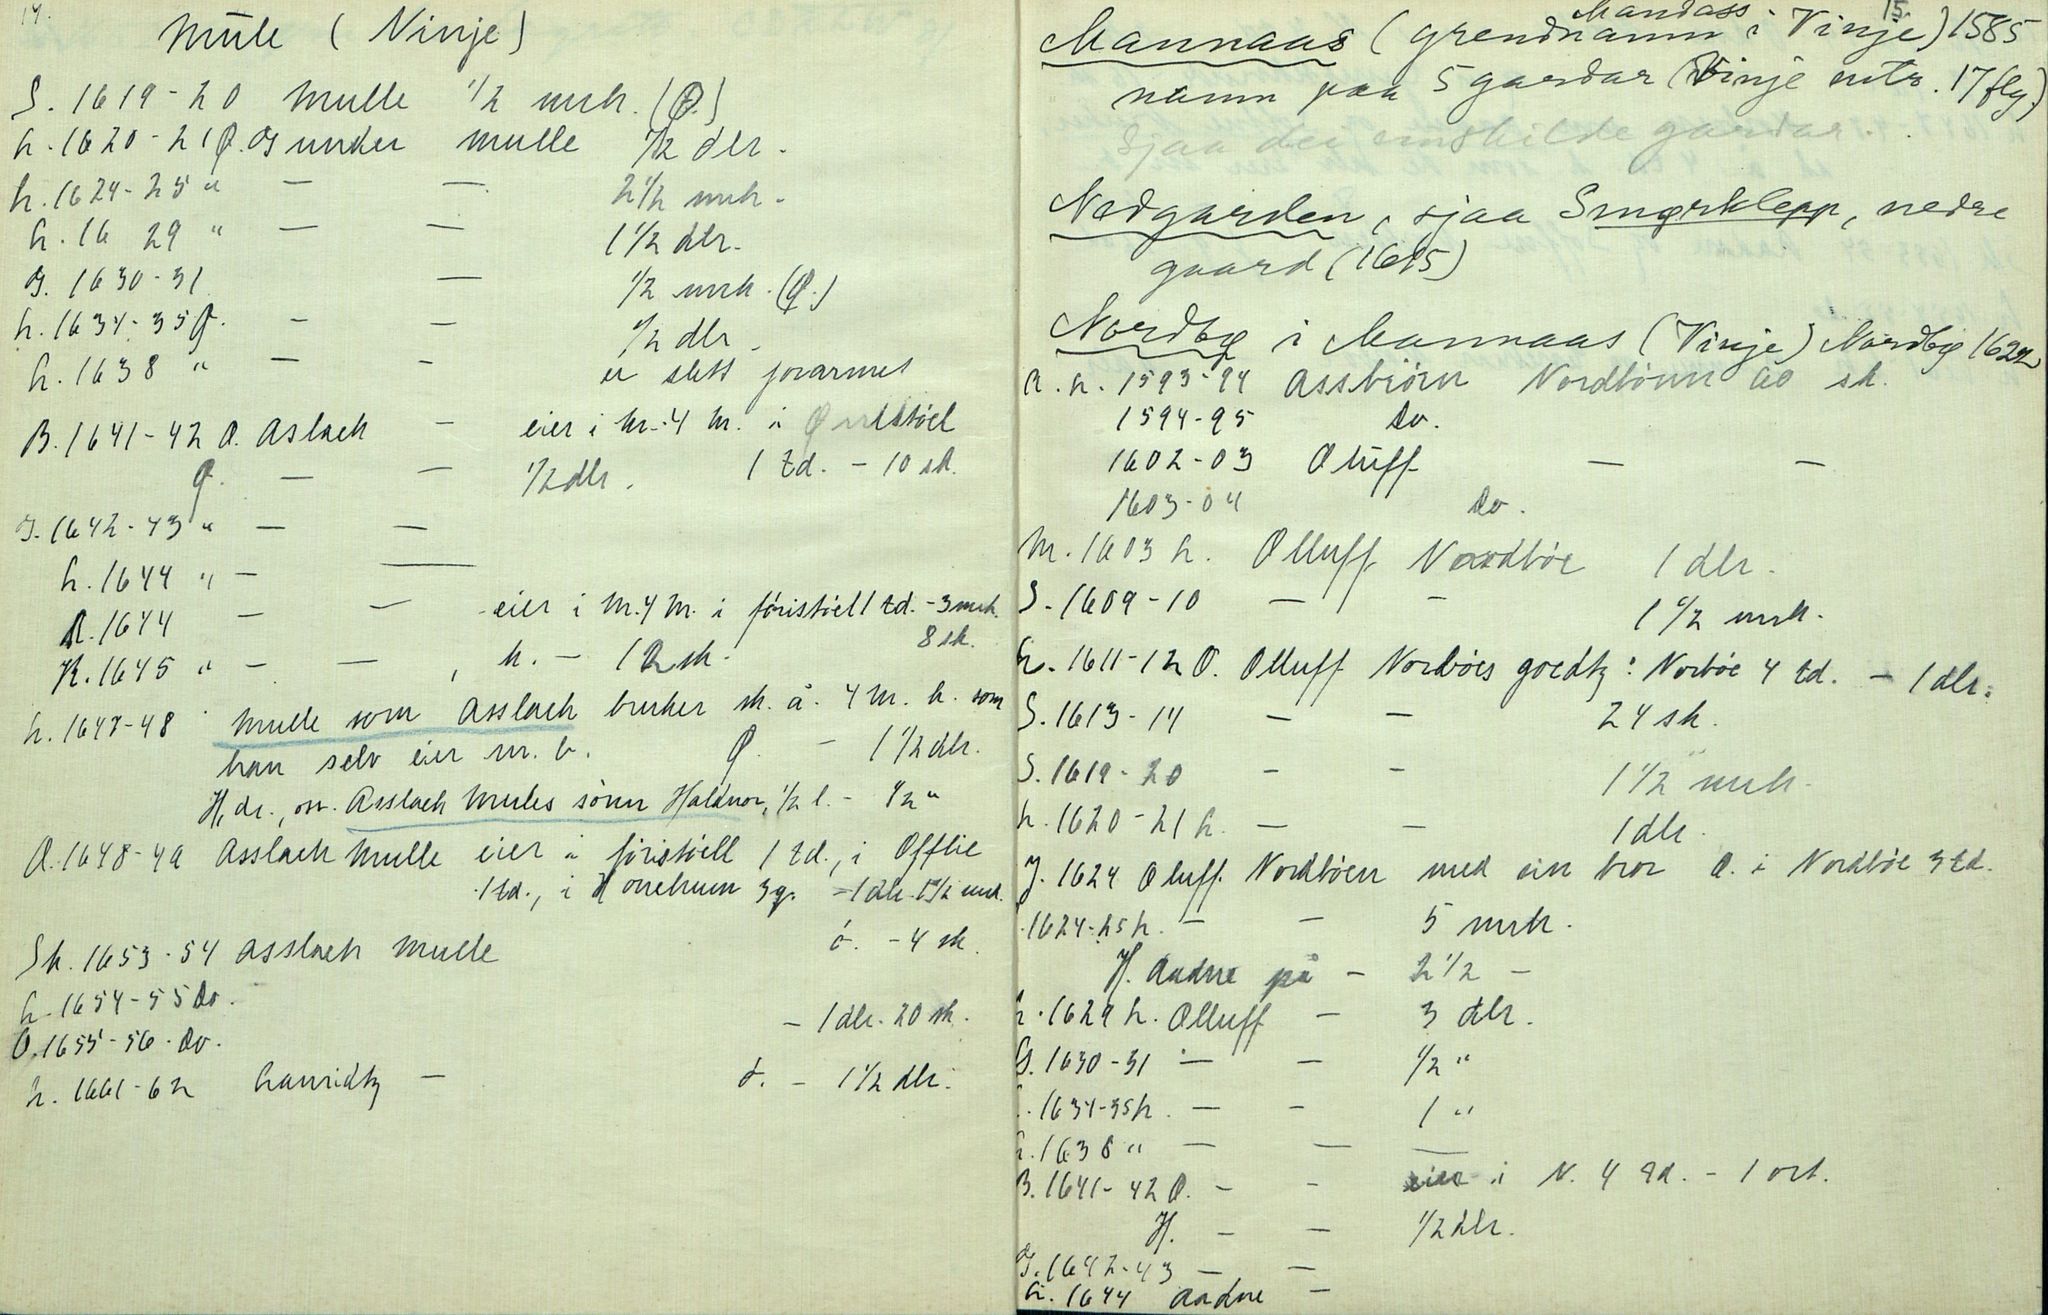 14.
Mule (Vinje)
S. 1619-20 Mulle 1/2 mrk. (Ø.)
h. 1620-21 Ø. Og under Mulle 1/2 dlr.
h. 1624-25 " — — 2 1/2 mrk.
h. 1629 " — — 1 1/2 dlr.
G. 1630-31 — 1/2 mrk. (Ø.)
h. 1634-35 Ø. — — 1/2 dlr.
h. 1638 " — — er slett forarmet
B. 1641-42 O. Aslach — eier i M. 4 m. i
Ø. — — 1/2 dlr. 1 td. - 10 sk.
G. 1642-43 " — —
h. 1644 " — —
R. 1644 — — eier i M. 4 m. iföristöel 1 td. - 3 mrk.
8 sk.
K. 1645 " — — , h. — 12 sk.
h. 1647-48 Mulle som Asslach bruker sk. å. 4 m. h. som
han selv eier m. b. Ø. — 1 1/2 dlr.
H, dr., Asslach Mules sönn Haldnor, 1/2 l. - 1/2 "
O. 1648-49 Asslach Mulle eier i föristöell 1 td., i Offtie
1 td., i 3 - 1 dlr. 1 1/2 mrk.
Sk. 1653-54 Asslach Mulle ö. - 4 sk.
h. 1654-55 Do.
— 1 dlr. 20 sk.
O. 1655-56 Do.
h. 1661-62 — ö. — 1 1/2 dlr.
15.
Mandass
Mannaas (grendnamn i Vinje) 1585
namn paa 5 gardar (Vinje mtr. 17 flg.)
Sjaa dei einskilde gardar.
Nedgarden, sjaa Smørklepp, nedre
gaard (1665)
Nordbø i Mannaas (Vinje) Nordbø 1622
R. h. 1593-94 Assbiörn Nordbönn sk.
1594-95 Do.
1602-03 Oluff — —
1603-04 Do.
M. 1603 h. Olluff Nordböe 1 dlr.
S. 1609-10 — — 1 1/2 mrk.
h. 1611-12 O. Olluff Norböes goedtz: Norböe 4 td. — 1 dlr.
S. 1613-14 — — 24 sk.
S. 1619-20 — — 1 1/2 mrk.
h. 1620-21 h. — — 1 dlr.
J. 1624 Oluff Nordböen med ein bror O. i Nordböe 3 td.
1624-25 h. — — 5 mrk.
H. Aadne på — 2 1/2 —
h. 1629 h. Olluff — 3 dlr.
G. 1630-31 — — 1/2 "
1634-35 h. — — 1 "
h. 1638 " — — —
B. 1641-42 O. — — eier i N. 4 td. - 1 ort.
H. — — 1/2 dlr.
G. 1642-43 — —
h. 1644 Aadne —